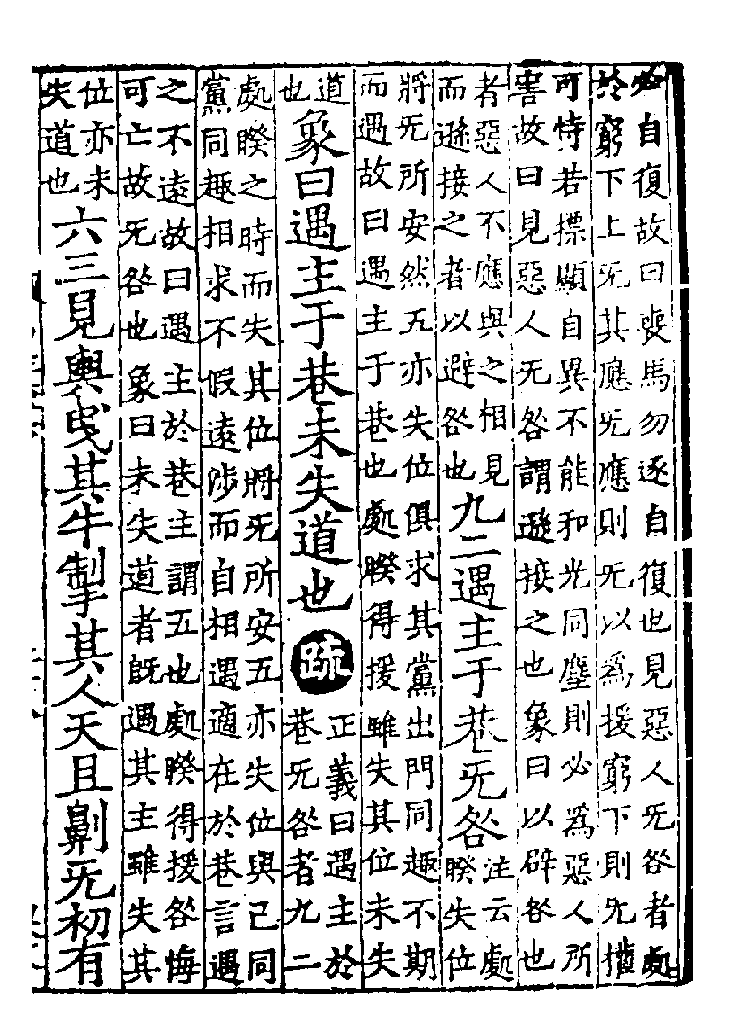 必自復故曰喪馬勿逐自復也見惡人无咎者處
於窮下上无其應无應則无以為援窮下則无權
可恃若標顯自異不能和光同塵則必為惡人所
害故曰見惡人无咎謂遜接之也象曰以辟咎也
者惡人不應與之相見
而遜接之者以避咎也
九二遇主于巷无咎
注云處
睽失位
將无所安然五亦失位俱求其黨出門同趣不期
而遇故曰遇主于巷也處睽得援雖失其位未失
道
也
象曰遇主于巷未失道也
疏
正義曰遇主於
巷无咎者九二
處睽之時而失其位將无所安五亦失位與己同
黨同趣相求不假遠涉而自相遇適在於巷言遇
之不遠故曰遇主於巷主謂五也處睽得援咎悔
可亡故无咎也象曰未失道者既遇其主雖失其
位亦未
失道也
六三見輿曳其牛掣其人天且劓无初有